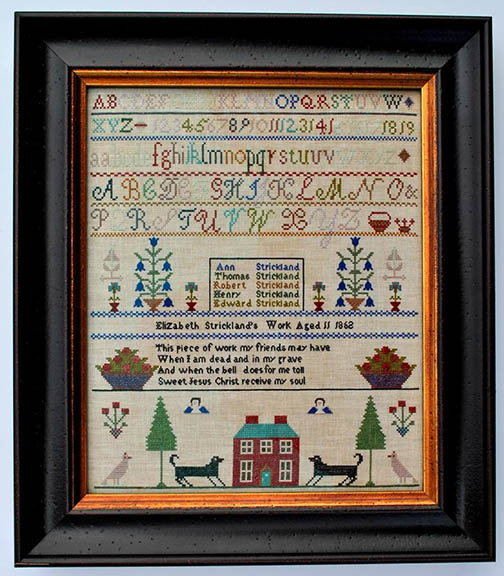 ABCDEF KLMNOPQRSTUVW
XYZ 4567891011121314 1819
aabcde fghijklmnopqrstuvvwxyz
ABCD GHIKLMNO&
PRSTUVWXYZ
Ann Strickland
Thomas Strickland
Robert Strickland
Henry Strickland
Edward Strickland
Elizabeth Strickland's Work Aged 11 1862
This piece of work my friends may have
When I am dead and in my grave
And when the bell does for me toll
Sweet Jesus Christ receive my soul